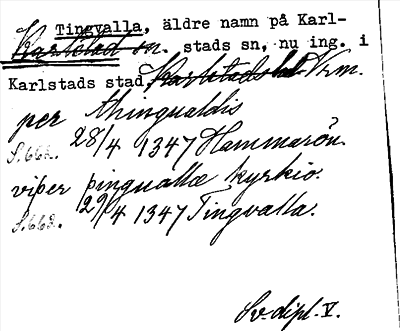 Tingvalla, äldre namn på Karl-
Karlstad sn. stads sn, nu ing. i
Karlstads stad, Karlstads hd. Vrm.
per thingualdis
S.662. 28/4 1347 Hammarön.
viþer þinguallæ kyrkio.
S.663. 29/4 1347 Tingvalla.
Sv. dipl. V.